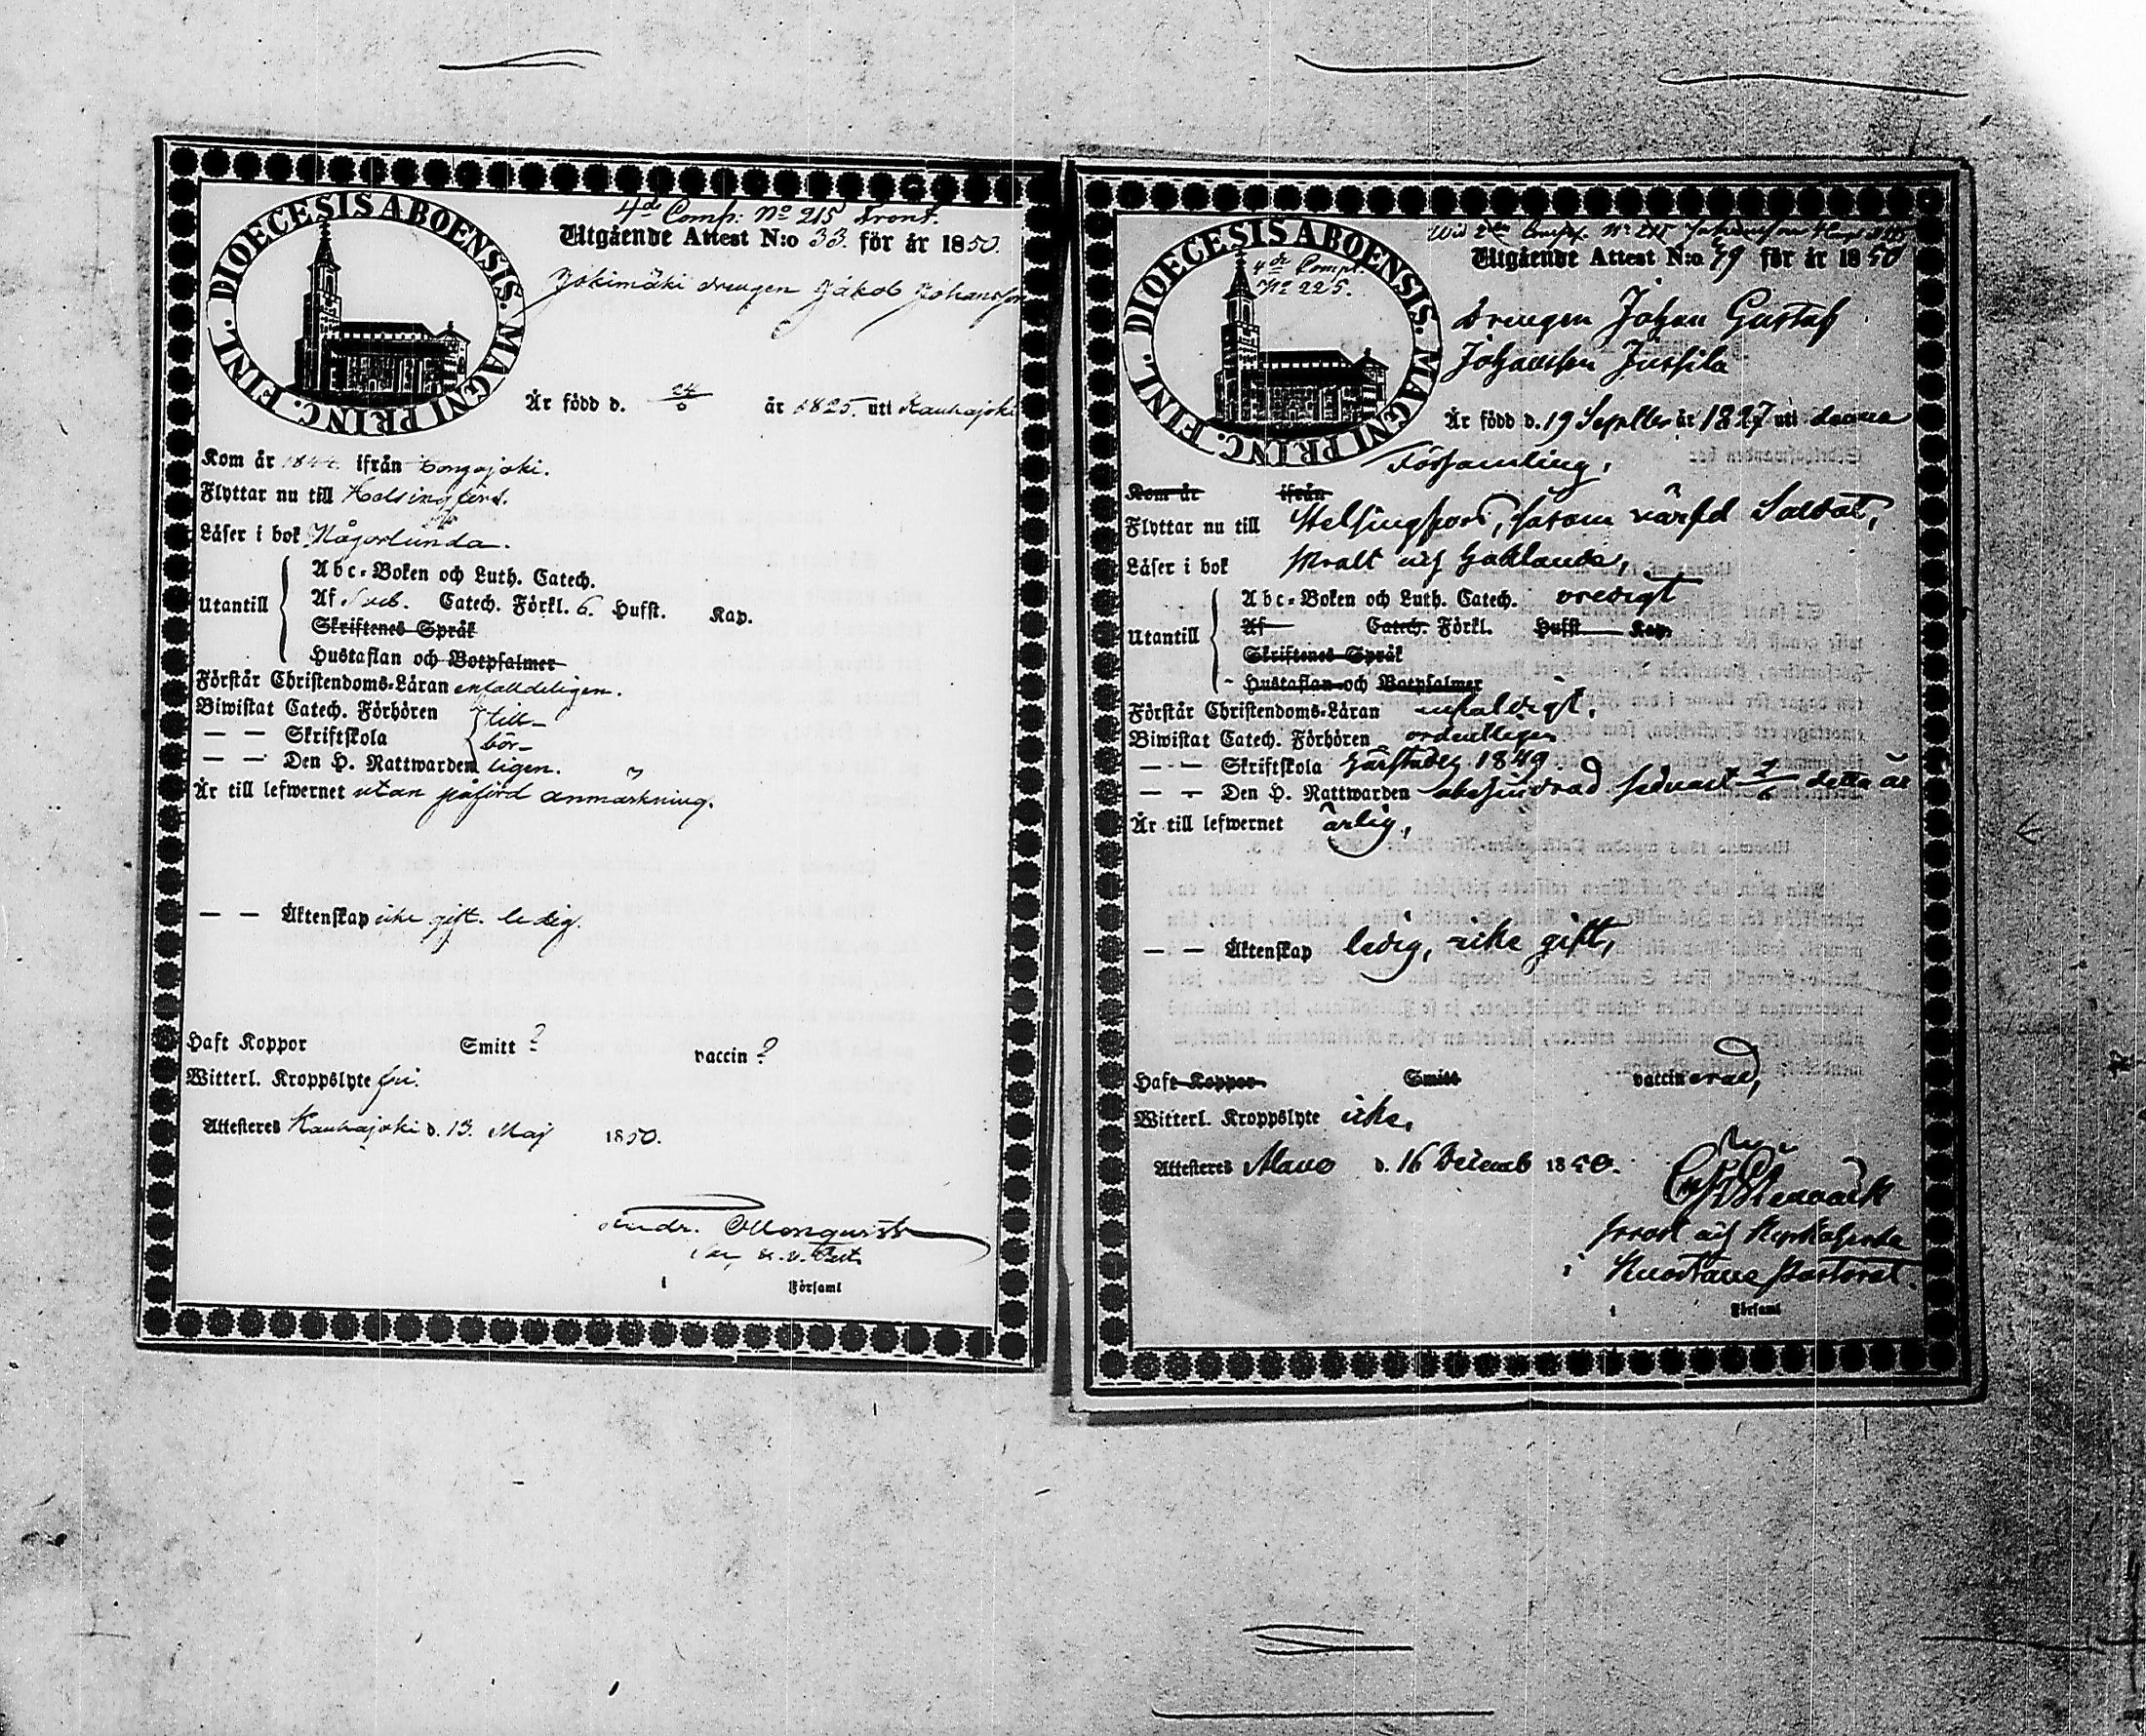 4de Comp: No 215 Front.
DIOECESIS ABOENSIS. MAGNI PRINC. FINL.
Utgående Attest N:o 33. för år 1850.
Jokimäki drengen Jakob Johansson
Är född d. 24/6 år 1825. uti Kauhajoki
Kom år ifrån
Flyttar nu till Helsingfors.
Läser i bok Någorlunda.
Utantill
Abc-Boken och Luth. Catech.
Af Sveb. Catech. Förkl. 6. Hufst. Kap.
Skriftenes Språk
Hustaflan och Botpsalmer
Förstår Christendoms-Läran enfalldeligen.
Biwistat Catech. Förhören till-
— — Skriftskola bör-
— — Den H. Nattwarden ligen.
Är till lefwernet utan påförd anmärkning.
— — Äktenskap icke gift. ledig.
Haft Koppor Smitt ? vaccin ?
Witterl. Kroppslyte fri.
Attesteras Kauhajoki d. 13. Maj 1850.
i Församl
No
DIOECESIS ABOENSIS. MAGNI PRINC. FINL.
4de Comp.
No 225.
Utgående Attest N:o 49 för år 1850
Drengen Johan Gustaf
Johansson Jussila
Är född d. 19 Septber år 1827 uti
Församling,
Kom år ifrån
Flyttar nu till Helsingfors, såsom värfd Soldat,
Läser i bok svalt och
Utantill
Abc-Boken och Luth. Catech. oredigt
Af Catech. Förkl. Hufst Kap.
Skriftenes Språk
Hustaflan och Botpsalmer
Förstår Christendoms-Läran enfaldigt.
Biwistat Catech. Förhören ordentligen
— — Skriftskola 1849
— — Den H. Nattwarden senast detta år
Är till lefwernet ärlig,
— — Äktenskap ledig, icke gift,
Haft Koppor Smitt vaccinerad,
Witterl. Kroppslyte icke.
Attesteras Alavo d. 16 Decemb 1850.
i Kuortane Pastorat.
i Församl